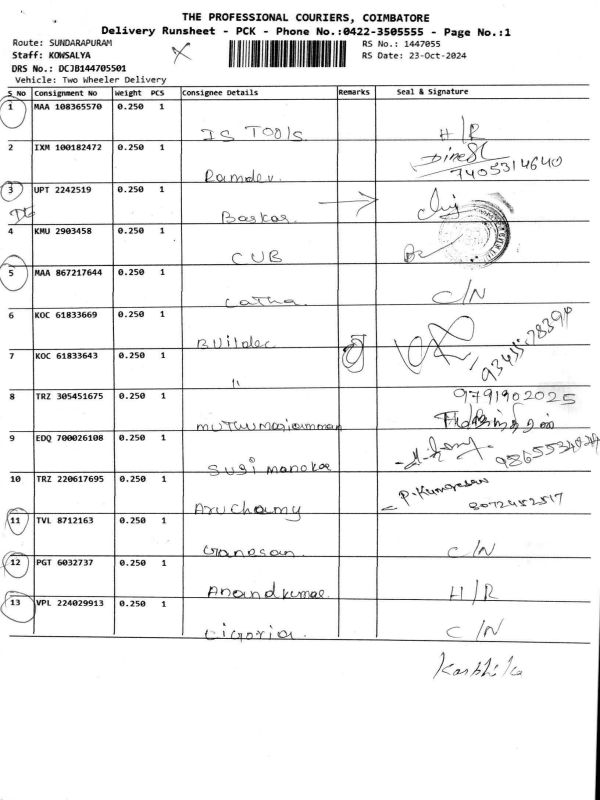 THE PROFESSIONAL COURIERS, COIMBATORE
Delivery Runsheet - PCK - Phone No.:0422-3505555 - Page No.:1
Route: SUNDARAPURAM
RS No.: 1447055
Staff: KOWSALYA
RS Date: 23-Oct-2024
DRS No.: DCJB144705501
Vehicle: Two Wheeler Delivery
S_No Consignment No Weight PCS Consignee Details Remarks Seal & Signature
1 MAA 108365570 0.250 1
IS TOOLS. H/R
2 IXM 100182472 0.250 1
Ramdev. 7405314640
3 UPT 2242519 0.250 1
Baskar
4 KMU 2903458 0.250 1
CUB
5 MAA 867217644 0.250 1
Latha. C/N
6 KOC 61833669 0.250 1
Builder
7 KOC 61833643 0.250 1
"
8 TRZ 305451675 0.250 1 9791902025
Muthumariamman
9 EDQ 700026108 0.250 1
Susi manokar
10 TRZ 220617695 0.250 1 P. Kumaresan
Aruchamy 8072452517
11 TVL 8712163 0.250 1
Ganesan C/N
12 PGT 6032737 0.250 1
Anandkumar H/R
13 VPL 224029913 0.250 1
Ligoria. C/N